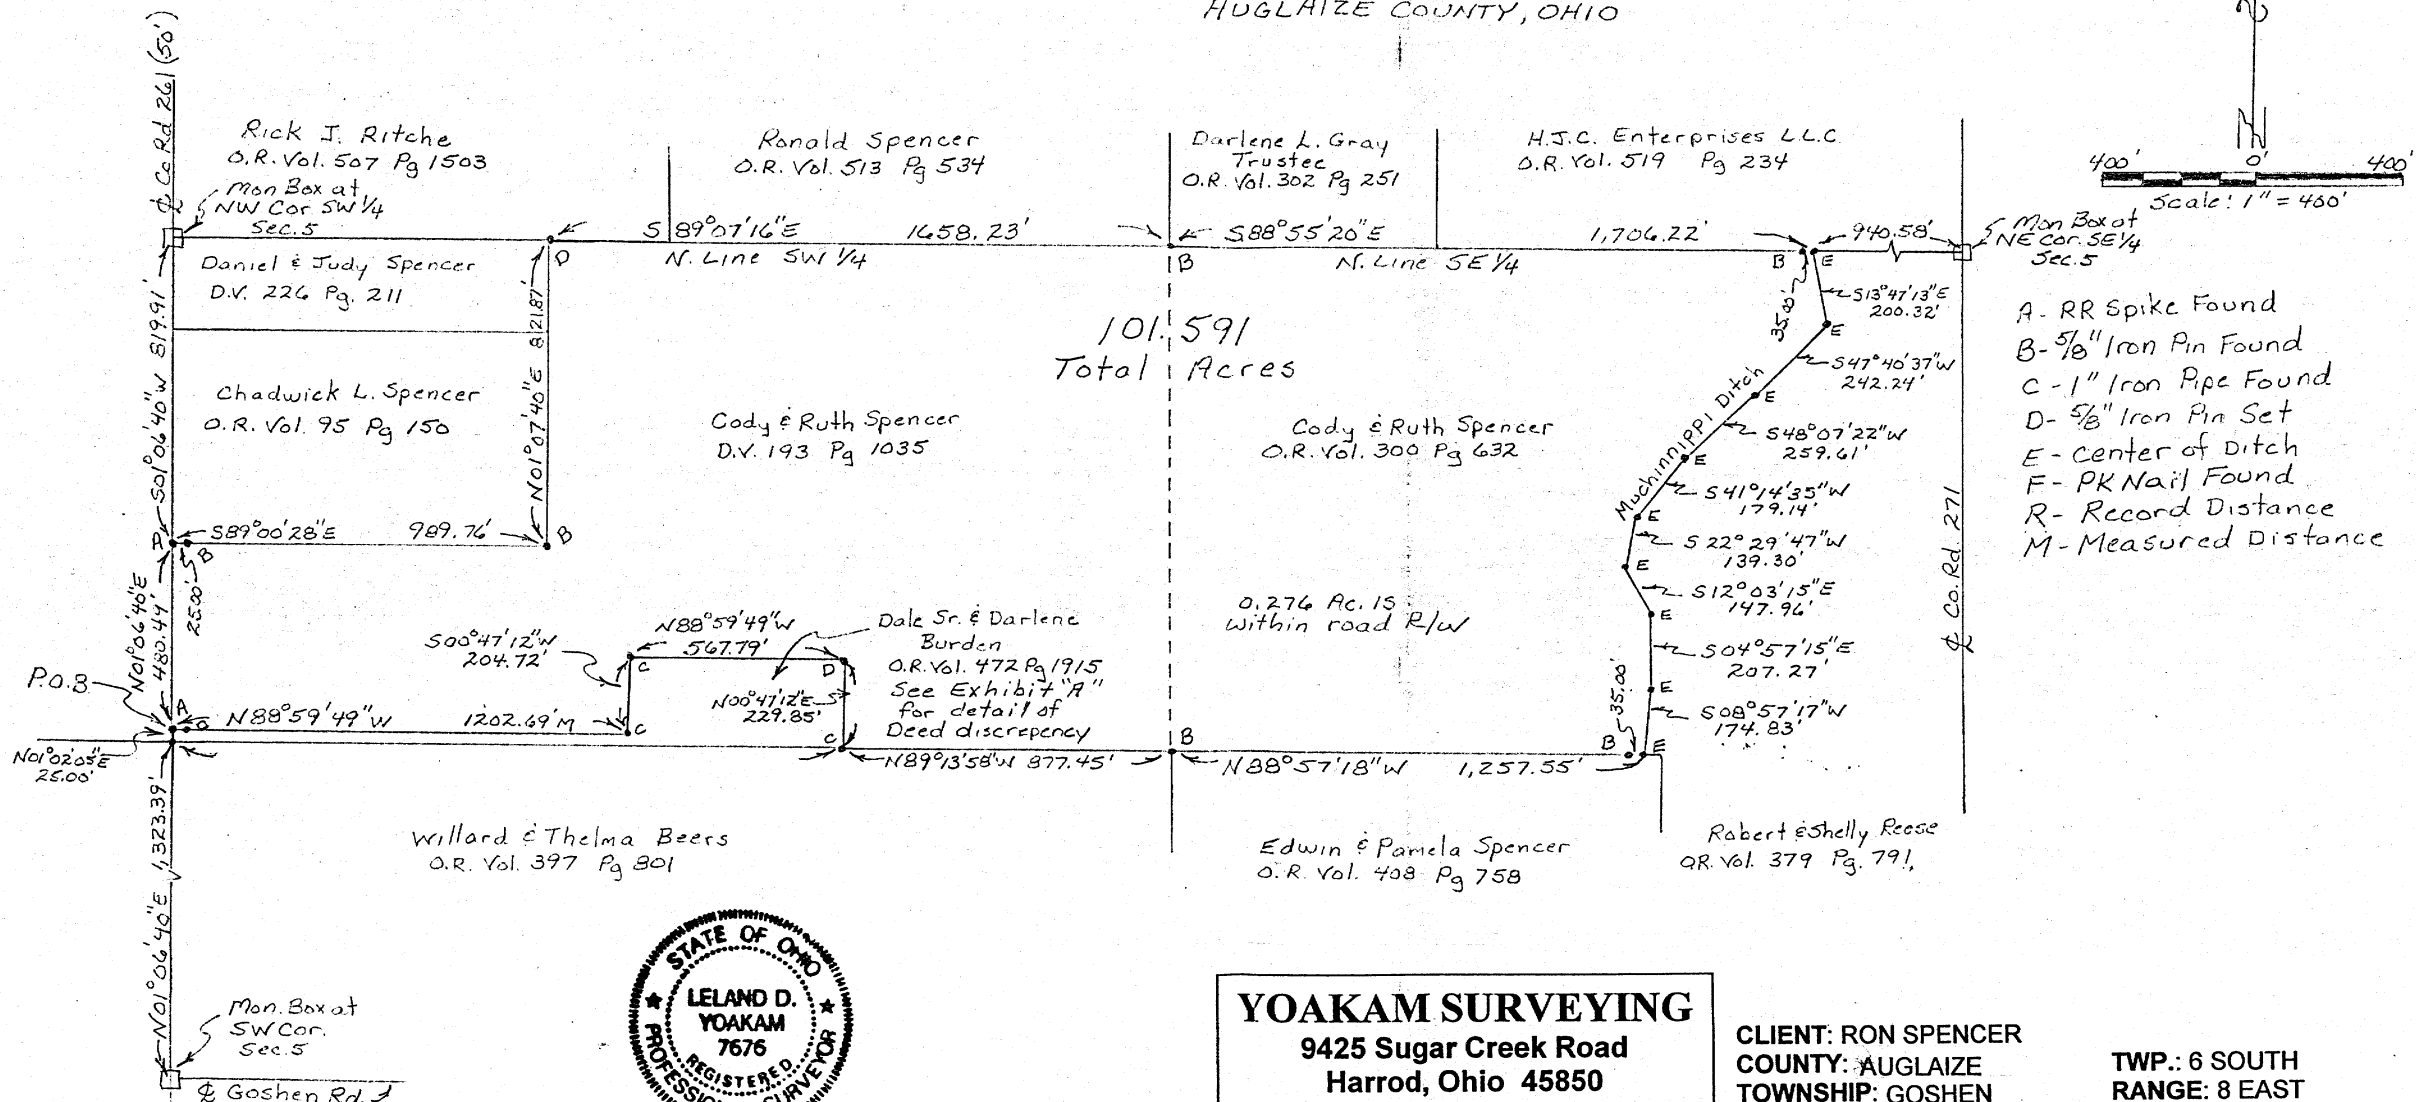 AUGLAIZE COUNTY, OHIO
℄ Co Rd 261 (50')
Rick J. Ritche
O.R. Vol. 507 Pg 1503
Mon Box at
NW Cor SW 1/4
Sec. 5
Ronald Spencer
O.R. Vol. 513 Pg 534
Darlene L. Gray
Trustee
O.R. Vol. 302 Pg 251
H.J.C. Enterprises L.L.C.
O.R. Vol. 519 Pg 234
N
400' 0' 400'
Scale: 1" = 400'
S 89°07'16"E 1658.23'
N. Line SW 1/4
D
B
S88°55'20"E 1,706.22'
N. Line SE 1/4
B E
940.58'
Mon Box at
NE Cor. SE 1/4
Sec. 5
Daniel & Judy Spencer
D.V. 226 Pg. 211
S01°06'40"W 819.91'
Chadwick L. Spencer
O.R. Vol. 95 Pg 150
N01°07'40"E 821.87'
101.591
Total Acres
Cody & Ruth Spencer
D.V. 193 Pg 1035
Cody & Ruth Spencer
O.R. Vol. 300 Pg 632
35.00'
S13°47'13"E
200.32'
E
S47°40'37"W
242.24'
E
Muchinnippi Ditch
S48°07'22"W
259.61'
E
S41°14'35"W
179.14'
E
S 22°29'47"W
139.30'
E
S12°03'15"E
147.96'
E
S04°57'15"E
207.27'
E
S08°57'17"W
174.83'
℄ Co. Rd. 271
A - RR Spike Found
B - 5/8" Iron Pin Found
C - 1" Iron Pipe Found
D - 5/8" Iron Pin Set
E - Center of Ditch
F - PK Nail Found
R - Record Distance
M - Measured Distance
S89°00'28"E 989.76'
B
B
25.00'
N01°06'40"E
480.44'
P.O.B.
A
N88°59'49"W 1202.69'M
S00°47'12"W
204.72'
N88°59'49"W
567.79'
C
D
C
N00°47'12"E
229.85'
C
Dale Sr. & Darlene
Burden
O.R. Vol. 472 Pg 1915
See Exhibit "A"
for detail of
Deed discrepency
0.276 Ac. is
within road R/W
35.00'
N01°02'05"E
25.00'
N89°13'58"W 877.45'
B
N88°57'18"W 1,257.55'
B E
Willard & Thelma Beers
O.R. Vol. 397 Pg 801
Edwin & Pamela Spencer
O.R. Vol. 408 Pg 758
Robert & Shelly Reese
OR. Vol. 379 Pg. 791
N01°06'40"E 1,323.39'
Mon. Box at
SW Cor.
Sec. 5
℄ Goshen Rd.
STATE OF OHIO
LELAND D.
YOAKAM
7676
REGISTERED
PROFESSIONAL SURVEYOR
YOAKAM SURVEYING
9425 Sugar Creek Road
Harrod, Ohio 45850
CLIENT: RON SPENCER
COUNTY: AUGLAIZE
TOWNSHIP: GOSHEN
TWP.: 6 SOUTH
RANGE: 8 EAST